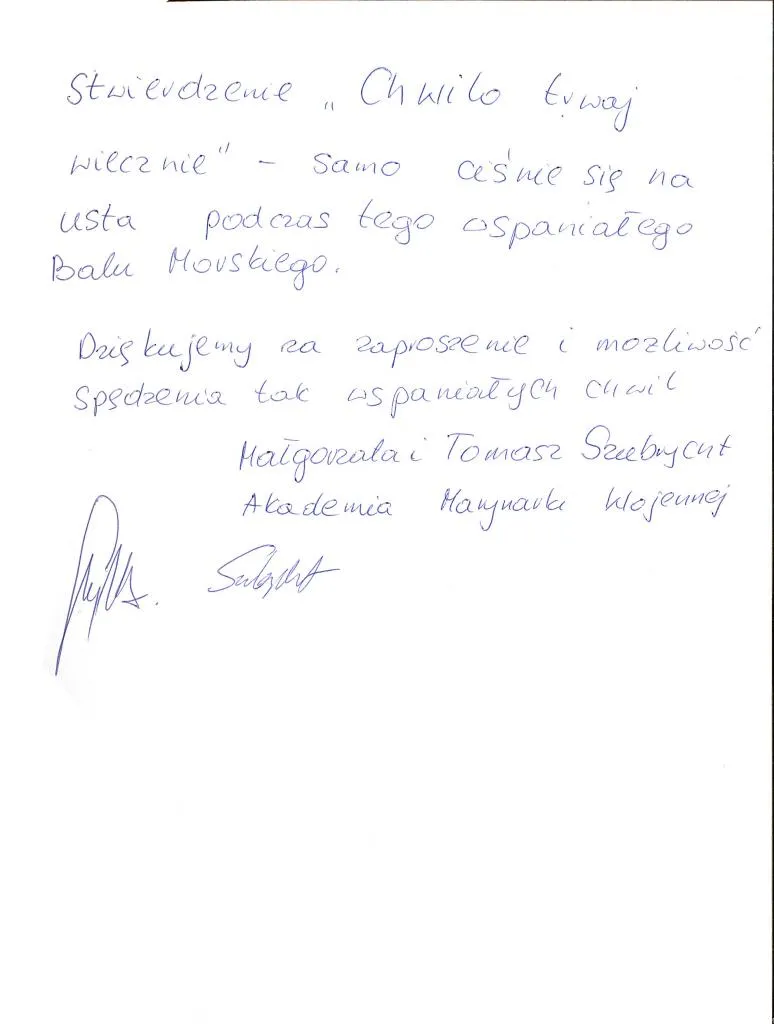 Stwierdzenie „Chwilo trwaj
wiecznie" - samo ciśnie się na
usta podczas tego wspaniałego
Balu Morskiego.
Dziękujemy za zaproszenie i możliwość
spędzenia tak wspaniałych chwil
Małgorzata i Tomasz Szubrycht
Akademia Marynarki Wojennej
Szubrycht